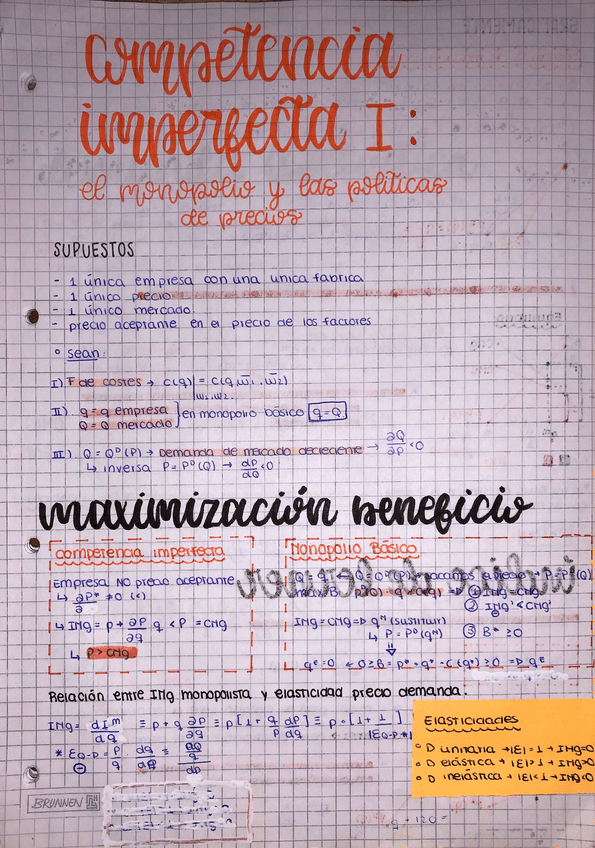 competencia
imperfecta I:
el monopolio y las políticas
de precios
SUPUESTOS
- 1 única empresa con una unica fabrica
- 1 único precio
- 1 único mercado
- precio aceptante en el precio de los factores
° sean:
I) F de costes → C(q)| = C(q, w̄1, w̄2)
w1, w2.
II). q = q empresa
Q = Q mercado } en monopolio básico q=Q
III) Q = Qᴰ(P) → Demanda de mercado decreciente → ∂Q/∂P < 0
↳ inversa P = Pᴰ(Q) → dP/dQ < 0
maximización beneficio
competencia imperfecta
Empresa NO precio aceptante
↳ ∂P*/∂ ≠ 0 (<)
↳ IMg = p + ∂P/∂q q < P = CMg
↳ P > CMg
Monopolio Básico
① IMg = CMg
② IMg' < CMg'
IMg = CMg ⇒ qᵐ (sustituir)
↳ P = Pᴰ(qᵐ)
③ B* ≥ 0
Relación entre IMg monopolista y elasticidad precio demanda:
IMg = dIᵐ/dq ≡ p + q ∂p/∂q ≡ p[1 + q/p dp/dq] ≡ p · [1 + 1/
* εQ-P = P/q dq/dp ≡ dQ/q/dp
⊖
Elasticidades
° D unitaria → |E| = 1 → IMg=0
° D elástica → |E| > 1 → IMg>0
° D inelástica → |E| < 1 → IMg<0
BRUNNEN
q = 120 =